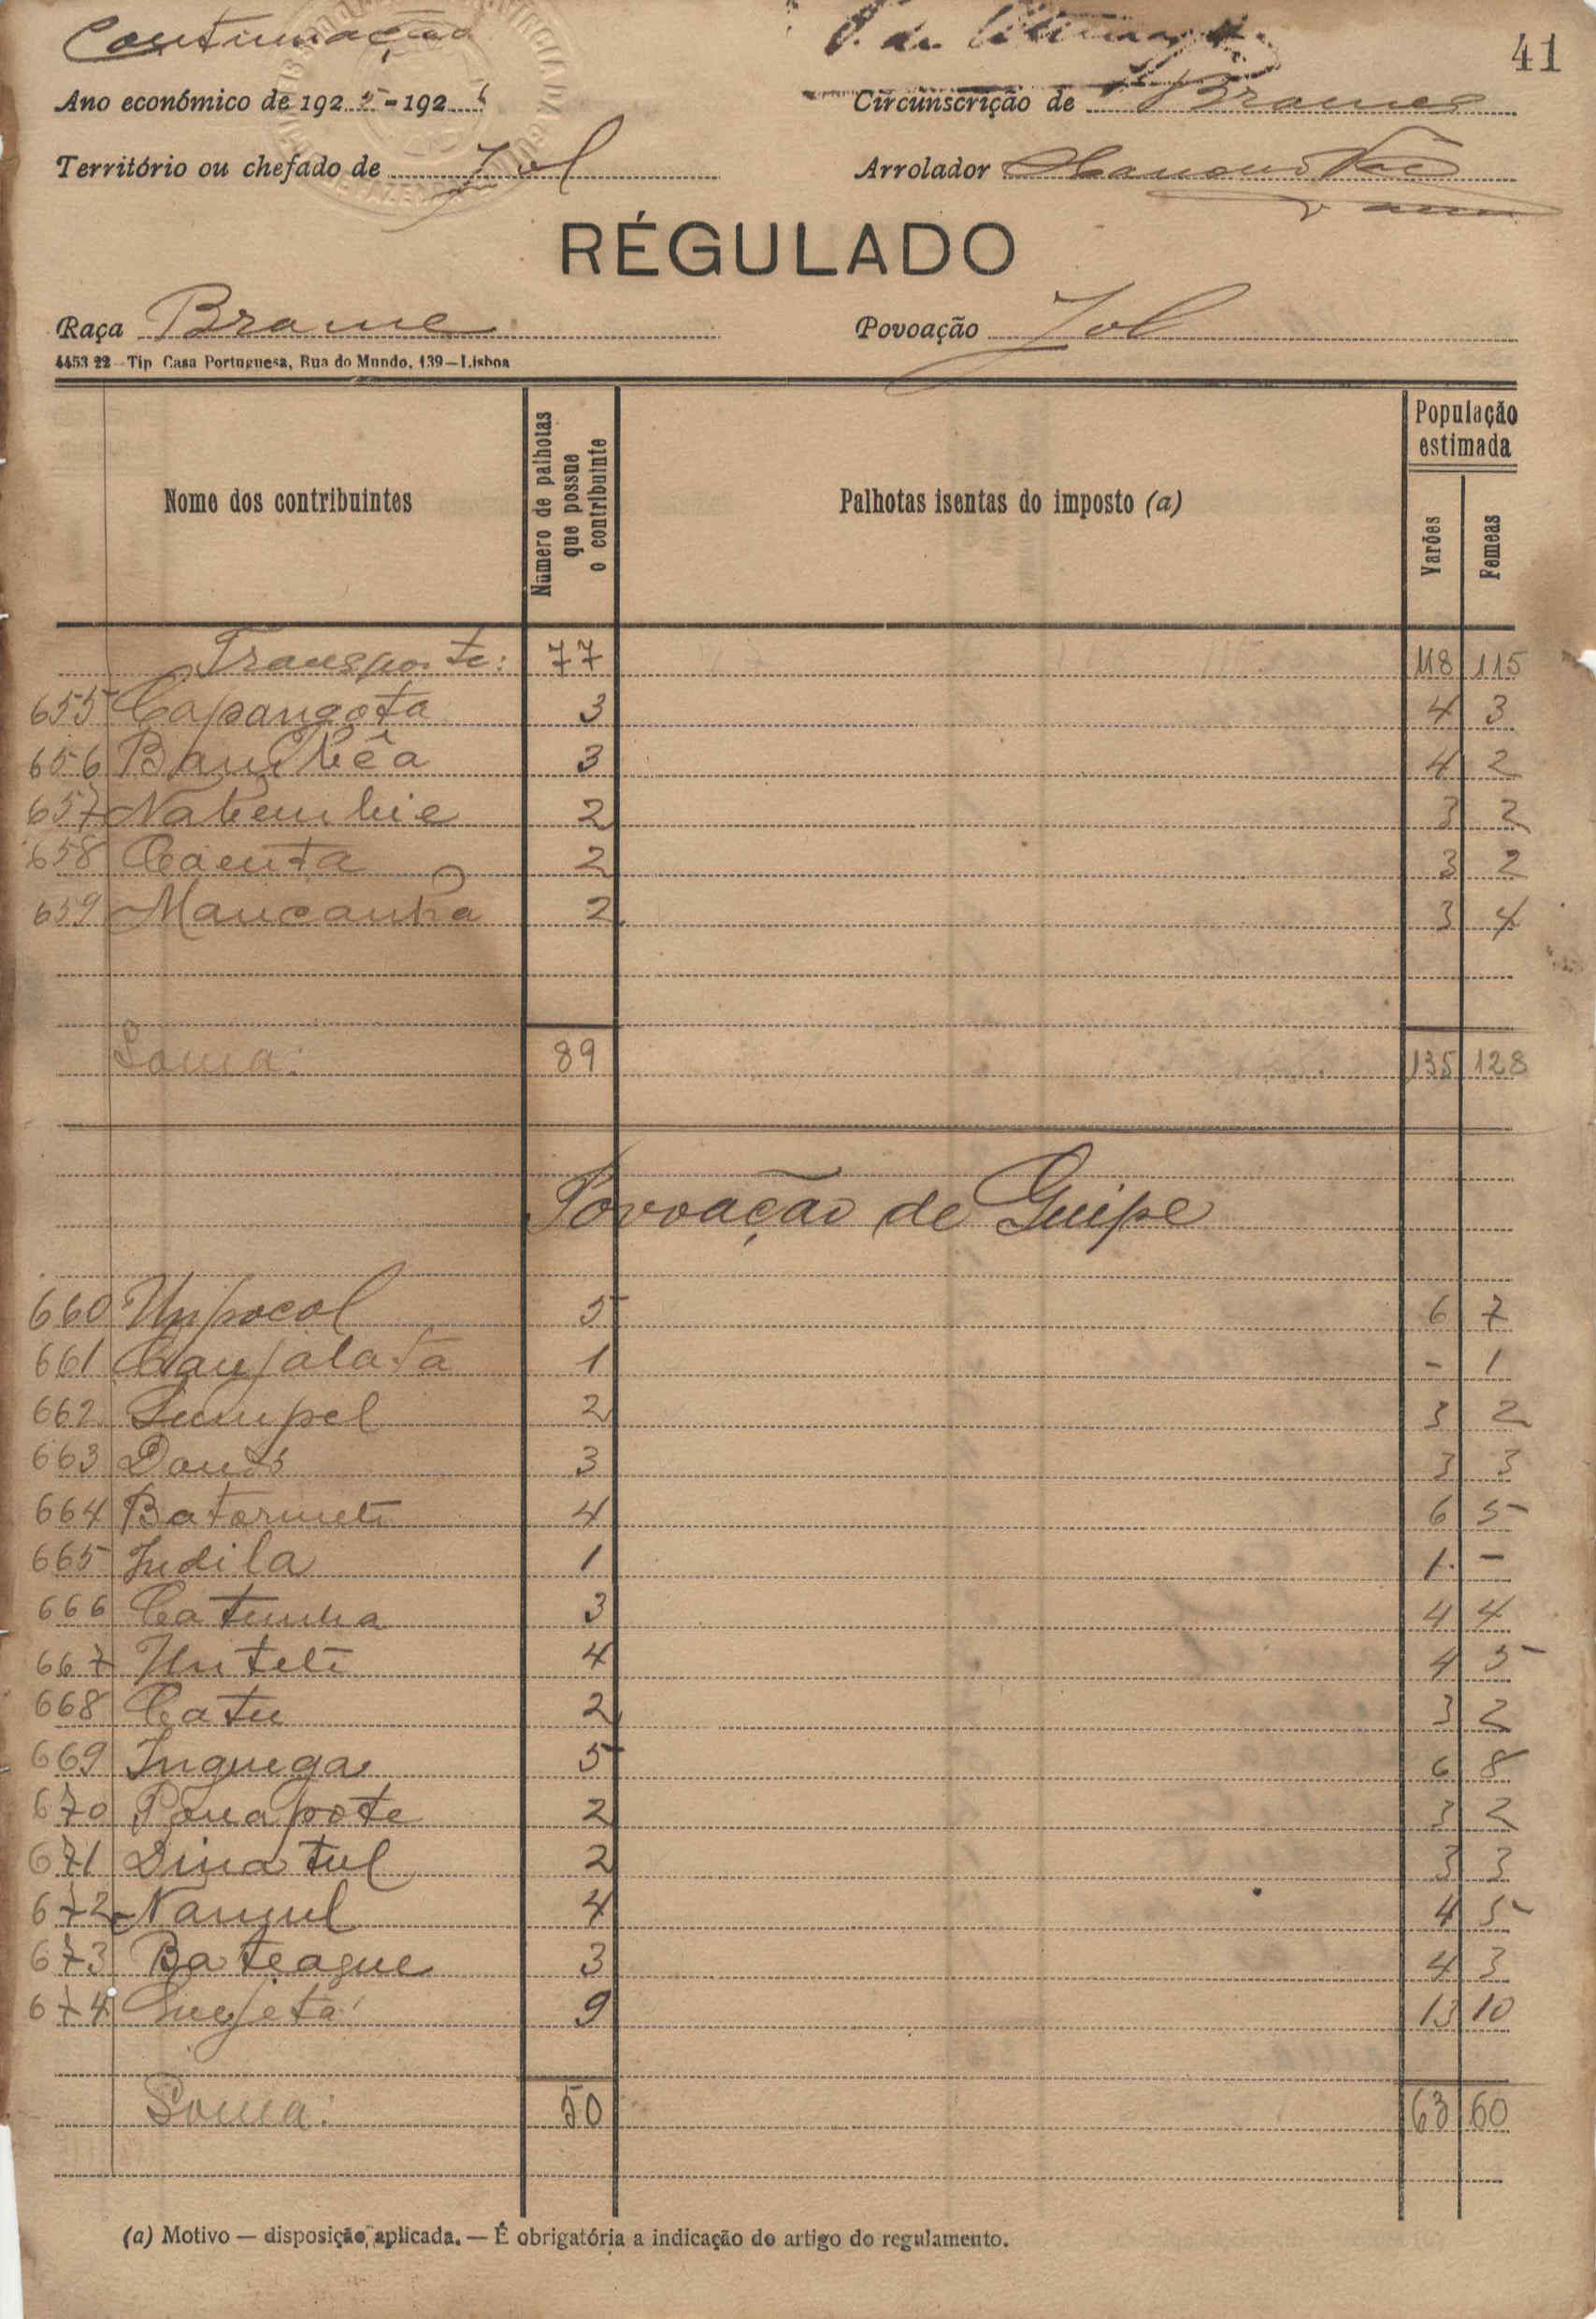 Continuação
41
Ano económico de 1925-1926
Circunscrição de Brames
Território ou chefado de Jol
Arrolador Mamadu
RÉGULADO
Raça Brame
Povoação Jol
4453 22 - Tip Casa Portuguesa, Rua do Mundo, 139-Lisboa
Nome dos contribuintes
Número de palhotas que possue o contribuinte
Palhotas isentas do imposto (a)
População estimada
Varões
Femeas
Transporte: 77 118 115
655 Capangota 3 4 3
656 Bambêa 3 4 2
657 Natembie 2 3 2
658 Caenta 2 3 2
659 Mancanha 2 3 4
Soma: 89 135 128
Povoação de Guipe
660 Unpocol 5 6 7
661 Canjalata 1 - 1
662 Sumpel 2 3 2
663 3 3 3
664 4 6 5
665 Indila 1 1 -
666 Catumha 3 4 4
667 Unteti 4 4 5
668 Catu 2 3 2
669 Inquega 5 6 8
670 Panapote 2 3 2
671 Dinatul 2 3 3
672 Nanjul 4 4 5
673 Bateague 3 4 3
674 9 13 10
Soma: 50 63 60
(a) Motivo — disposição aplicada. — É obrigatória a indicação do artigo do regulamento.